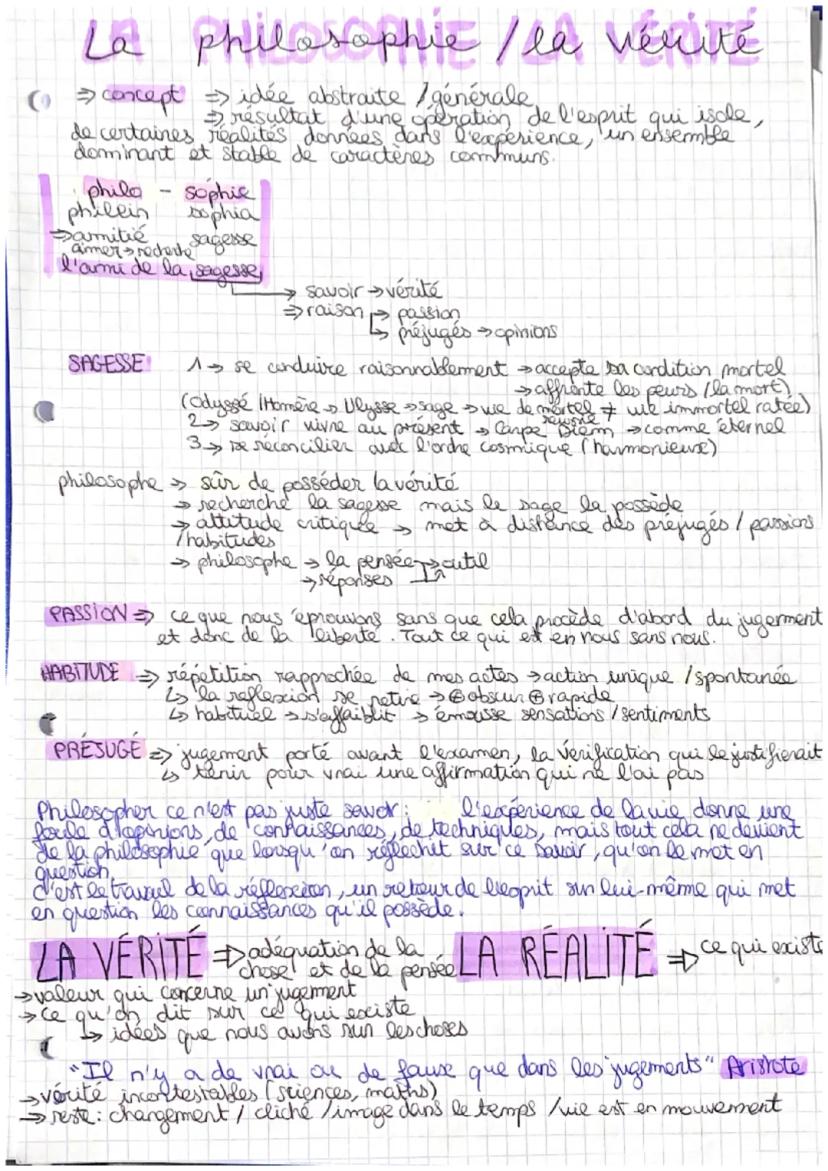 La philosophie / la vérité
⇒ concept ⇒ idée abstraite / générale
⇒ résultat d'une opération de l'esprit qui isole,
de certaines réalités données dans l'expérience, un ensemble
dominant et stable de caractères communs.
philo - sophie
philein sophia
⇒ amitié sagesse
aimer → recherche
l'ami de la sagesse
→ savoir → vérité
⇒ raison → passion
↳ préjugés → opinions
SAGESSE: 1 → se conduire raisonnablement → accepte sa condition mortel
→ affronte les peurs (la mort)
(Odyssé / Homère → Ulysse → sage → vie de mortel réussie ≠ vie immortel ratée)
2 → savoir vivre au présent → Carpe Diem → comme éternel
3 → se réconcilier avec l'ordre cosmique (harmonieux)
philosophe → sûr de posséder la vérité
→ recherche la sagesse mais le sage la possède
→ attitude critique → met à distance des préjugés / passions
/ habitudes
→ philosophe → la pensée → outil
→ réponses
PASSION ⇒ ce que nous éprouvons sans que cela procède d'abord du jugement
et donc de la liberté. Tout ce qui est en nous sans nous.
HABITUDE ⇒ répétition rapprochée de mes actes → action unique / spontanée
↳ la reflexion se retire → ⊕ obscur ⊕ rapide
↳ habituel → s'affaiblit → émousse sensations / sentiments
PRÉJUGÉ ⇒ jugement porté avant l'examen, la vérification qui le justifierait
↳ tenir pour vrai une affirmation qui ne l'ai pas
Philosopher ce n'est pas juste savoir : l'expérience de la vie donne une
foule d'opinions, de connaissances, de techniques, mais tout cela ne devient
de la philosophie que lorsqu'on réflechit sur ce savoir, qu'on le met en
question.
C'est le travail de la réflexion, un retour de l'esprit sur lui-même qui met
en question les connaissances qu'il possède.
LA VÉRITÉ ⇒ adéquation de la LA RÉALITÉ ⇒ ce qui existe
chose et de la pensée
→ valeur qui concerne un jugement
→ ce qu'on dit sur ce qui existe
↳ idées que nous avons sur les choses
"Il n'y a de vrai ou de faux que dans les jugements" Aristote
→ vérité incontestables (sciences, maths)
→ reste : changement / cliché / image dans le temps / vie est en mouvement